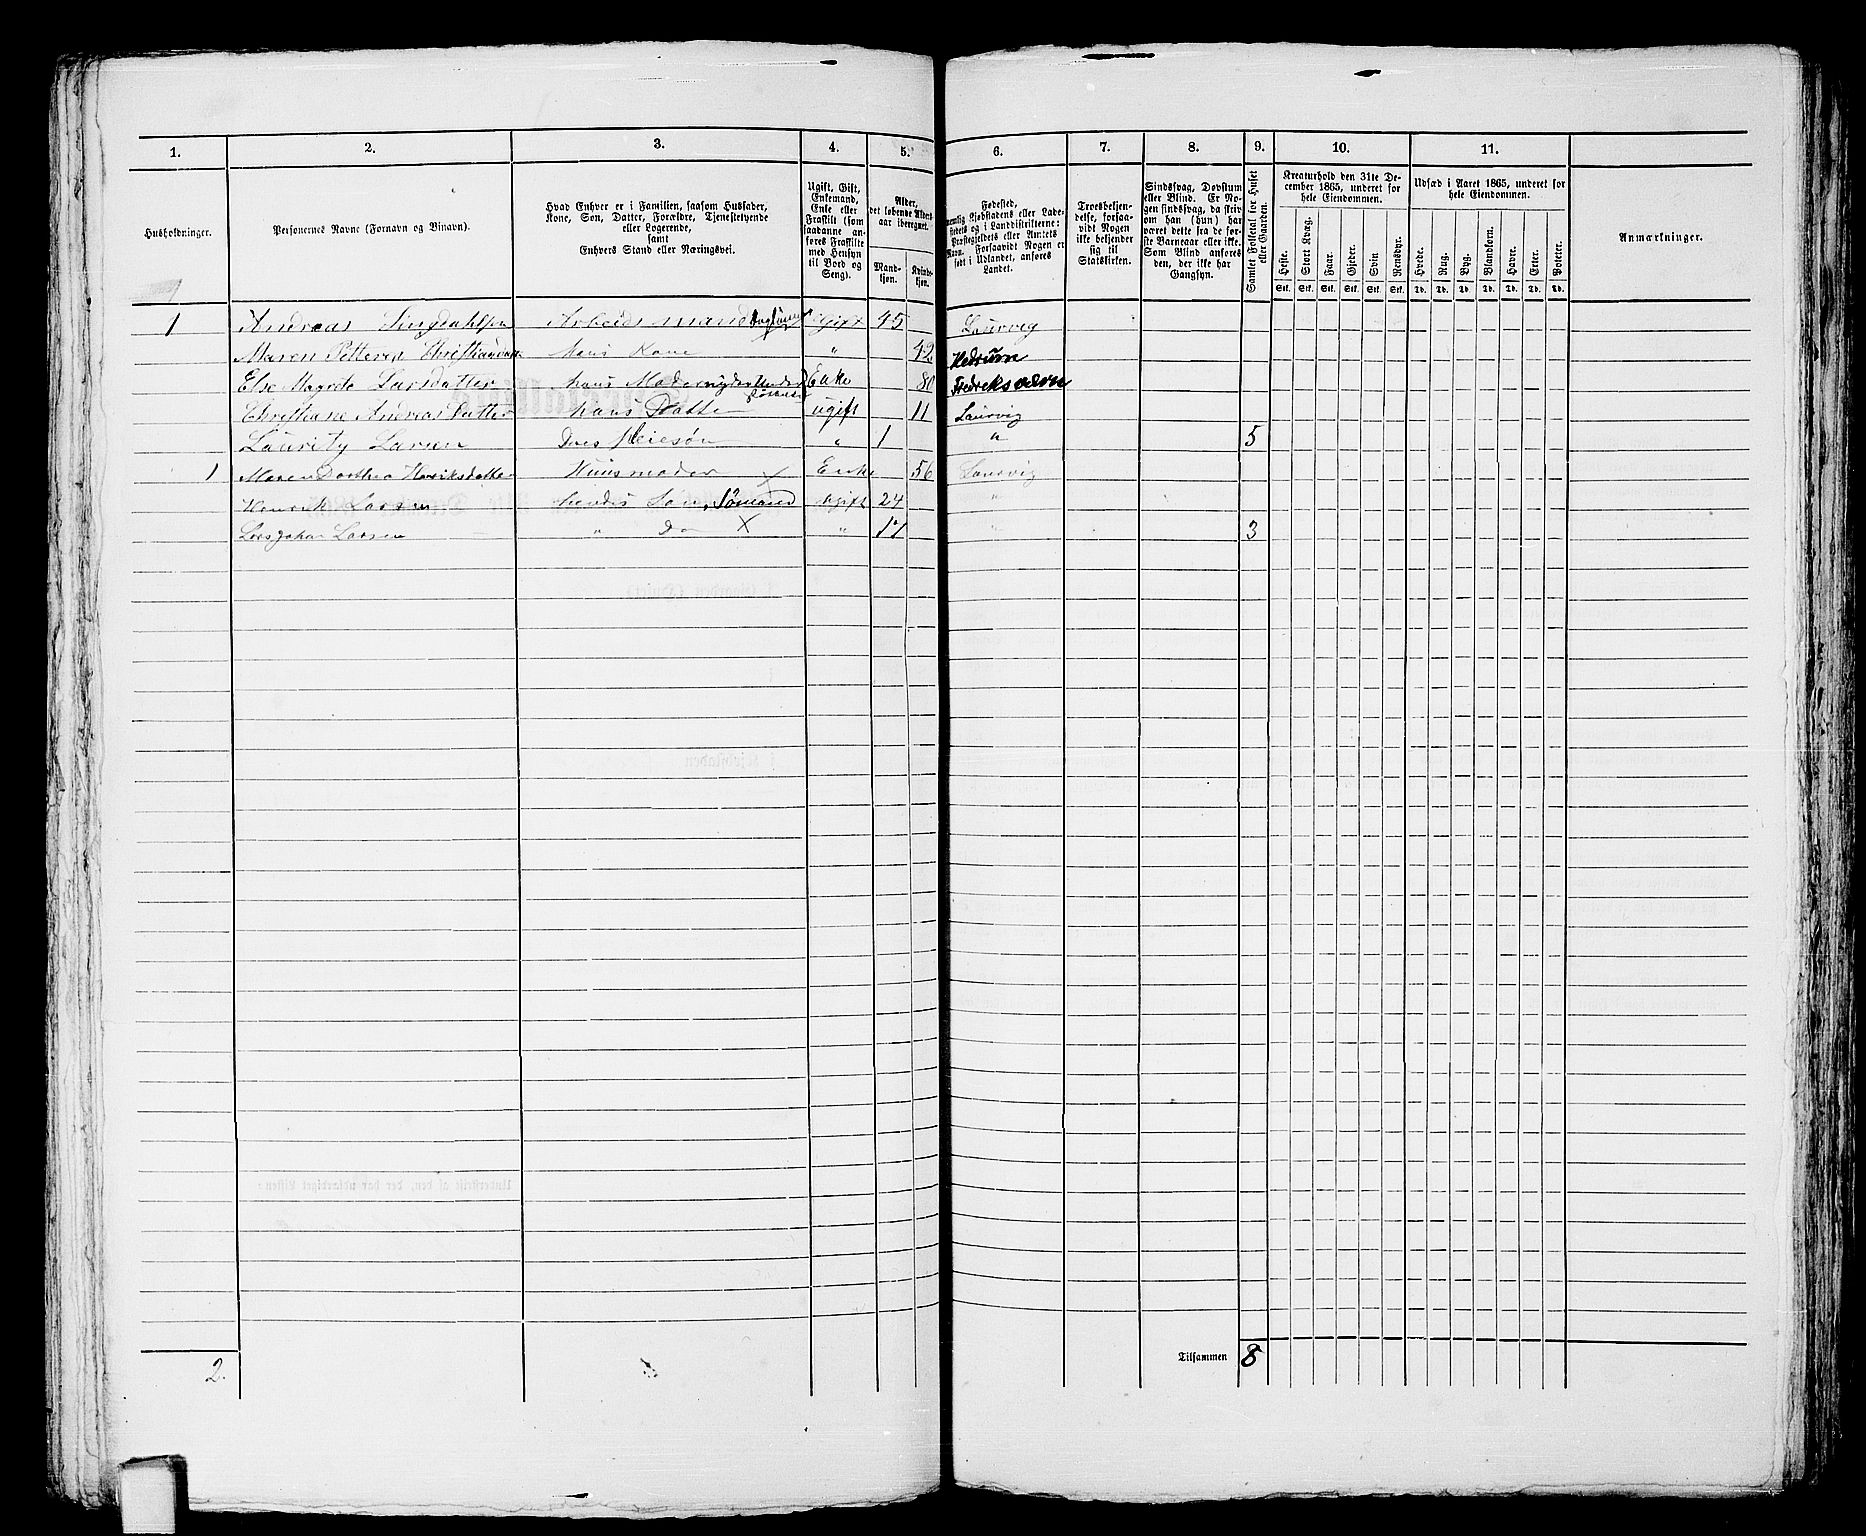 1. 2. 3. 4. 5. 6. 7. 8. 9. 10. 11.
Husholdninger.
Personernes Navne (Fornavn og Binavn).
Hvad Enhver er i Familien, saasom Husfader,
Kone, Søn, Datter, Forældre, Tjenestetyende
eller Logerende,
samt
Enhvers Stand eller Næringsvei.
Ugift, Gift,
Enkemand,
Enke eller
Fraskilt (som
saadanne an-
føres Fraskilte
med Hensyn
til Bord og
Seng).
Alder,
det løbende Alders-
aar iberegnet.
Mand-
kjøn.
Kvinde-
kjøn.
Fødested,
nemlig Kjøbstadens eller Lade-
stedets og i Landdistrikterne:
Præstegjeldets eller Amtets
Navn. Forsaavidt Nogen er
født i Udlandet, anføres
Landet.
Troesbekjen-
delse, forsaa-
vidt Nogen
ikke bekjender
sig til
Statskirken.
Sindssvag, Døvstum
eller Blind. Er No-
gen sindssvag, da skriv
om han (hun) har
været dette fra de før-
ste Barneaar eller ikke.
Som Blind anføres
den, der ikke har
Gangsyn.
Samlet Folketal for Huset
eller Gaarden.
Kreaturhold den 31te De-
cember 1865, underet for
hele Eiendommen.
Heste. Stort Kvæg. Faar. Gjeder. Svin Rensdyr.
Stk. Stk. Stk. Stk. Stk. Stk.
Udsæd i Aaret 1865, underet for
hele Eiendommen.
Hvede. Rug. Byg. Blandkorn. Havre. Erter. Poteter.
Td. Td. Td. Td. Td. Td. Td.
Anmærkninger.
1 Andreas Singdahlsen Arbeidsmand Gift 45 Laurvig
Maren Petterea Christiansdatt. Hans Kone " 42 Hedrum
Else Magrete Larsdatter hans Moder Enke 80 Fredriksværn
Christiane Andreas Datter hans Datter ugift 11 Laurvig
Lauritz Larsen Deres Pleiesøn " 1 " 5
1 Maren Dorthea Henriksdatter Huusmoder Enke 56 Laurvig
Henrik Larsen Hendes Søn, Sømand ugift 24 "
Lars Johan Larsen " Do " 17 " 3
2.
Tilsammen 8